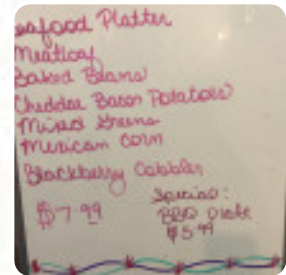 eafood Platter
Meatloaf
Baked Beans
Cheddar Bacon Potatoes
Mixed Greens
Mexican Corn
Blackberry Cobbler
$7.99
Special:
BBQ Plate
$5.99